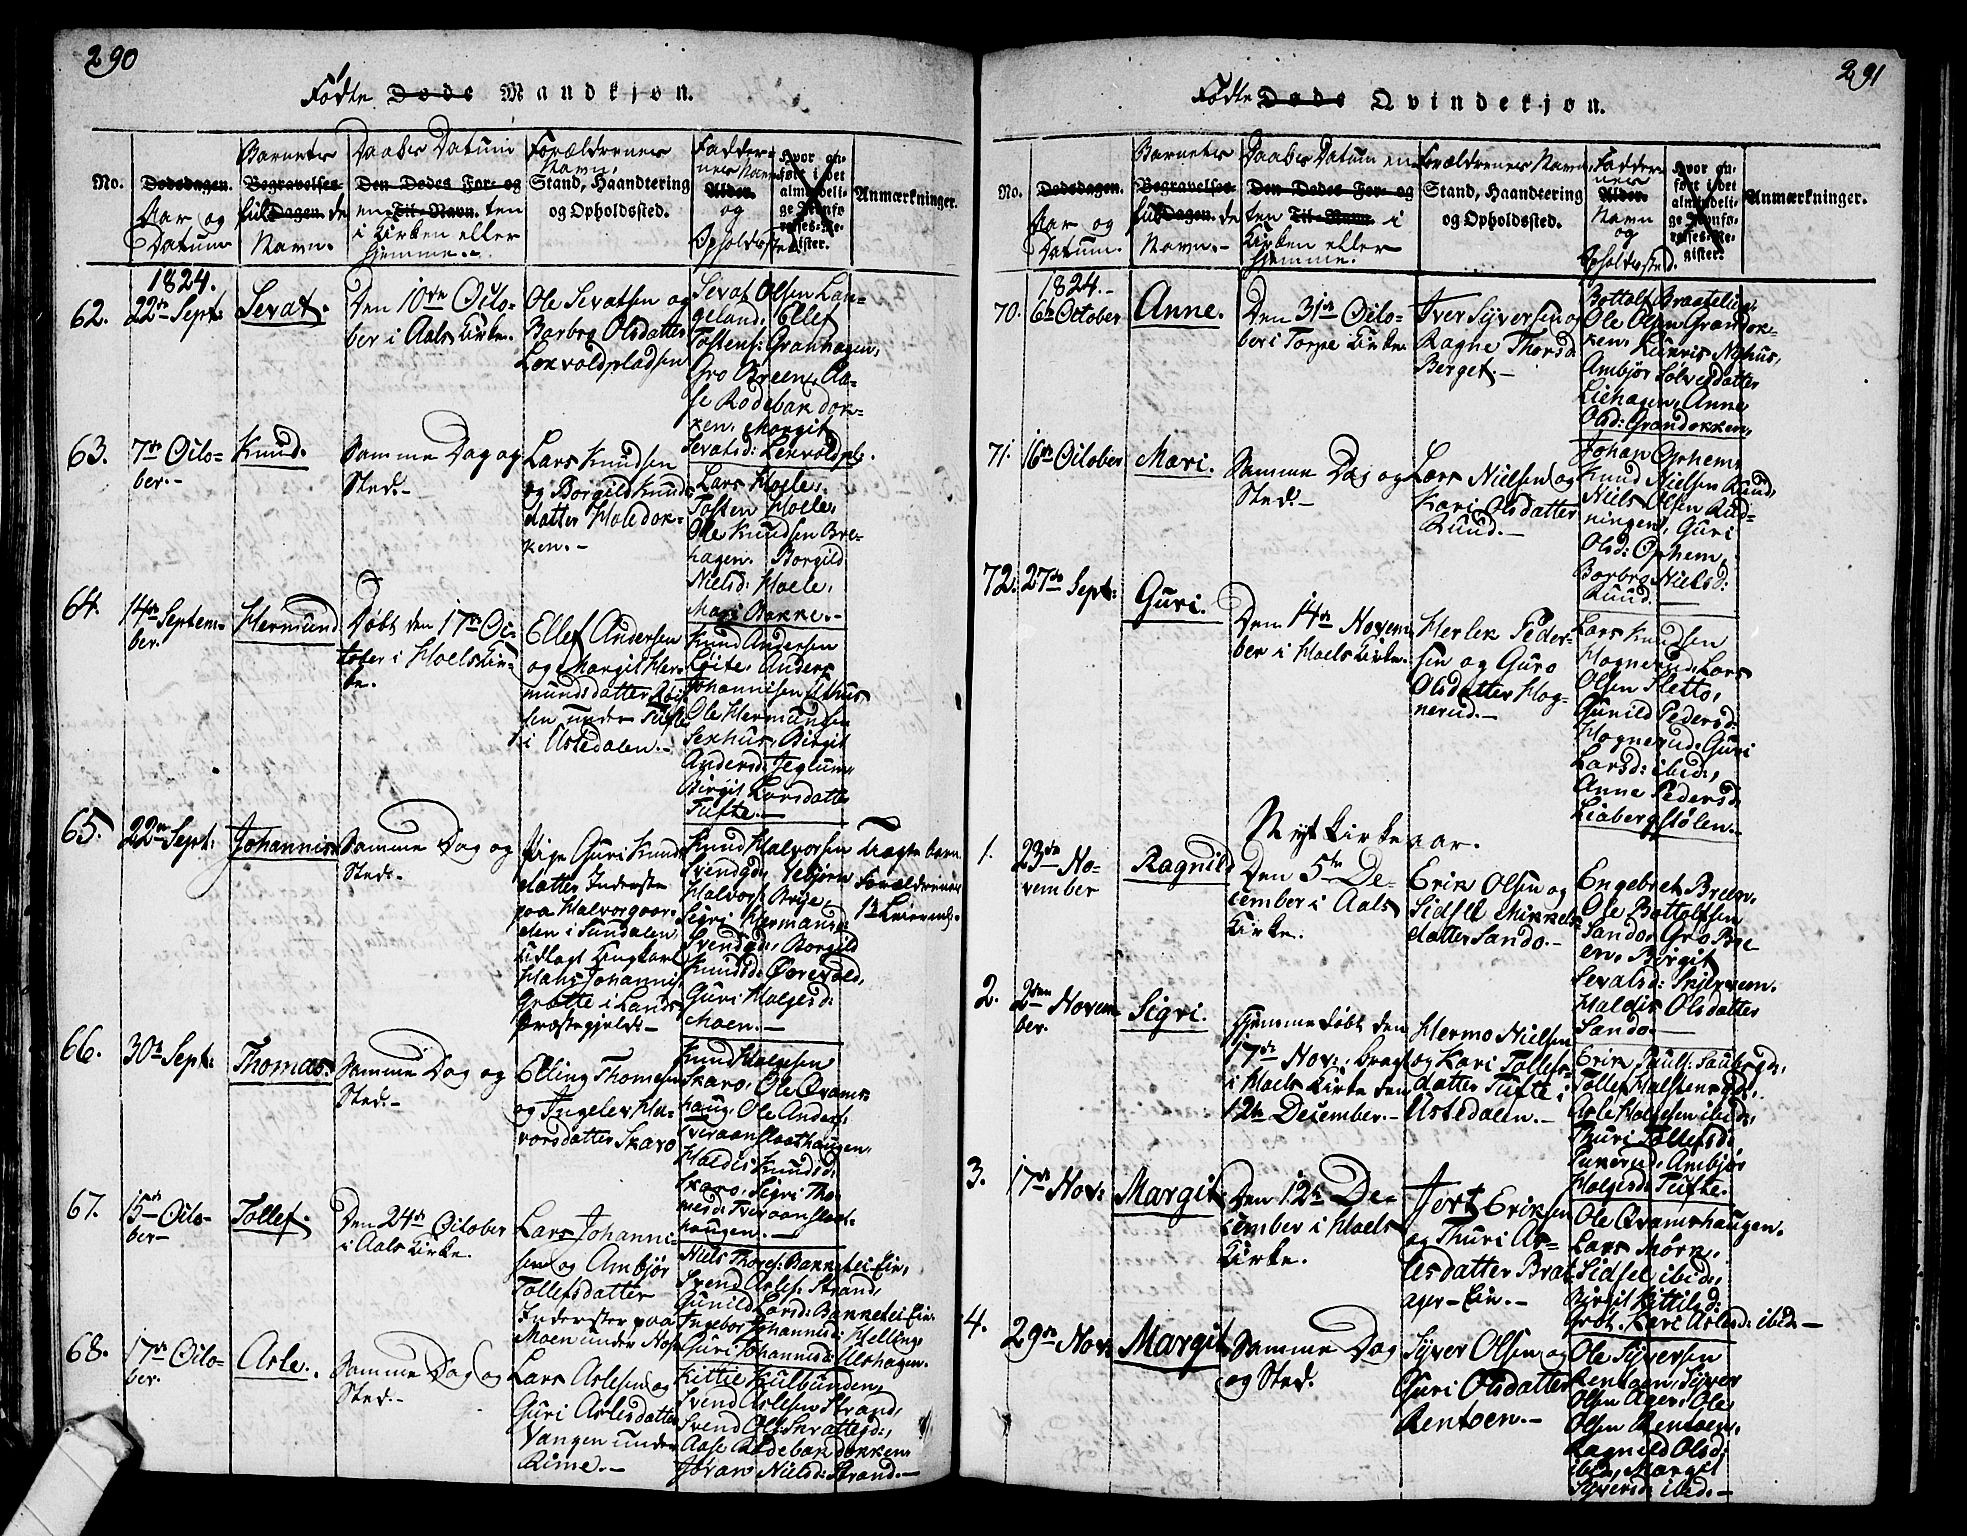 290
Fødte Døde Mandkjøn.
No.
Dødsdagen.
Aar og
Datum
Barnets
Begravelses-
fulde
Dagen.
Navn.
Daabs Datum
Den Dødes For- og
enten
Til-Navn.
i Kirken eller
hjemme.-
Forældrenes
Navn,
Stand, Haandtering
og Opholdssted.
Fadder-
nes Navn
Alder.
og
Opholdssted
Hvor an-
ført i det
almindeli-
ge Jevnfø-
relses-Re-
gister.
Anmærkninger.
1824.
62.
22de Sept:
Sevat.
Den 10de Octo-
ber i Aals Kirke.
Ole Sevatsen og
Barbro Olsdatter
Løkvoldpladsen
Sevat Olsen Lan-
geland, Ellef
Tostens: Granhagen,
Gro Breen, Aa-
se Rodebakdok-
ken, Margit
Sevatsd: Løkvoldpl.
63.
7de Octo-
ber.-
Knud.
Samme Dag og
Sted.-
Lars Knudsen
og Borgild Knuds-
datter Holedok-
ken.-
Lars Hoele,
Tosten Hoele,
Ole Knudsen Bre-
hagen, Borgild
Nielsd: Hoele,
Mari Bakke.-
64.
14de Septem-
ber.
Hermund
Døbt den 17de Oc-
tober i Hoels Kir-
ke.
Ellef Andersen
og Margit Her-
mundsdatter
sen under Tufte
i Ustedalen.-
Knud Andersen
Anders
Johannisen Uthus
Ole Hermundsen
Birgit
Andersd: Jeglum,
Birgit Larsdatter
Tufte.-
65.
22de Sept:
Johannis
Samme Dag og
Sted.
Pige Guri Knuds-
datter Inderste
paa Halvorgaar-
den i Sundalen
Udlagt Ungkarl
Hans Johannis:
Grøtte i Lands
Præstegjeld.-
Knud Halvorsen
Svendgd: Vebjørn
Halvors: Brye,
Sigri Hermunds:
Svendgd:, Borgild
Knudsd: Ørevold,
Guri Holgesd:
Moen.-
Uægte barn
Forældrenes
1ste Leiermaal.
66.
30te Sept:
Thomas.
Samme Dag og
Sted.-
Elling Thomesen
og Ingelev Hal-
vorsdatter Skaro
Knud Holgesen
Skaro, Ole Qvams-
haug, Ole Anders:
Tveraanslaathaugen,
Haldis Knudsd:
Skaro, Sigri Tho-
mesd: Tveraanslaat-
haugen.-
67.
15de Octo-
ber-
Tollef.
Den 24de October
i Aals Kirke.
Lars Johanni-
sen og Ambjør
Tollefsdatter
Inderster paa
Moen under Hofs
Niels Thores: Bakketeie Ein,
Svend Asles: Strand,
Gunild Larsd: Bakketeie Ein
Ingebor Johannisd: Helling
Guri Johannisd: Ulshagen.
68.
17de Octo-
ber.
Asle.
Samme Dag og
Sted.-
Lars Aslesen og
Guri Aslesdatter
Vangen under
Rime.-
Kittil Kulbunden,
Svend Aslesen Strand,
Svend Ols: Skrattegd:,
Aase Rodebakdokken
Jøran Nielsd: Strand.-
291
Fødte Døde Qvindekjøn.
No.
Dødsdagen.
Aar og
Datum.
Barnets
Begravelses-
fulde
Dagen.
Navn.-
Daabs Datum en-
Den Dødes For- og
ten
Til-Navn.
i
Kirken eller
hjemme.
Forældrenes Navn,
Stand, Haandtering
og Opholdssted.
Fadder-
nes
Alder.
Navn
og
Opholdssted.
Hvor an-
ført i det
almindeli-
ge Jevnfø-
relses-Re-
gister.
Anmærkninger.
1824.-
70.
6te October
Anne.
Den 31te Octo-
ber i Torpe Kirke.
Iver Syversen og
Ragne Thorsd:
Berget.-
Bottolf Braatelien
Ole Olsen Grandok-
ken, Nyhus,
Ambjør Sølvesdatter
Liehagen, Anne
Olsd: Grandokken,
71.
16de October
Mari.
Samme Dag og
Sted.-
Lars Nielsen og
Kari Olsdatter
Ruud.-
Johan Ophem,
Knud Nielsen Ruud,
Niels Olsen Rud-
ningen, Guri
Olsd: Ophem,
Barbro Nielsd:
Ruud.
72.
27de Sept:
Guri.
Den 14de Novem-
ber i Hoels Kirke.
Herlek Peder-
sen og Guro
Olsdatter Hog-
nerud.-
Lars Knudsen
Hognerud, Lars
Olsen Sletto,
Gunild Pedersd:
Hognerud, Guri
Larsd: ibid:,
Anne Pedersd:
Liabergstølen.-
Nyt Kirkeaar.
1.
23de No-
vember
Ragnild
Den 5te De-
cember i Aals
Kirke.
Erik Olsen og
Sidsel Mikkels-
datter Sando.-
Engebret Breen,
Ole Bottolfsen
Sando, Gro Bre-
en, Birgit
Sevatsd: Skjerveim.
Haldis Olsdatter
Sando.-
2.
2den Novem-
ber.
Sigri.
Hjemmedøbt den
17de Nov:, bragt
i Hoels Kirke den
12te December.-
Hermo Nielsen
og Kari Tollefs-
datter Tufte i
Ustedalen.-
Erik Pauls:
Tollef Halstensgd:,
Asle Holgesen ibid:,
Thuri Tollefsd:
Ambjør
Holgesd: Tufte.
3.
17de Nov:
Margit
Den 12te De-
cember i Hoels
Kirke.
Jort Eriksen
og Thuri As-
lesdatter Brat-
ager-Ein.-
Ole Qvamshaugen.
Lars Mørk,
Sidsel ibid:,
Birgit Kittilsd:
Grøt. Kari Aslesd: ibid.-
4.
29de Nov:
Margit
Samme Dag
og Sted.
Syver Olsen og
Guri Olsdatter
Rentoen.-
Ole Syversen
Rentoen, Syver
Olsen Ager, Ole
Olsen Rentoen,
Ragnild Olsd:
ibid, Margit
Syversd: ibid.-